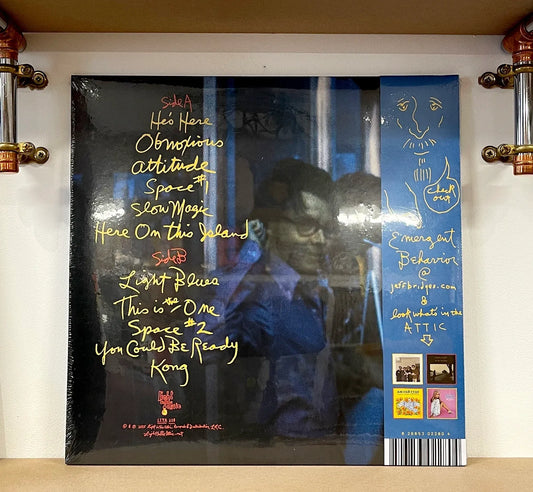 Side A
He's Here
Obnoxious
Attitude
Space #1
Slow Magic
Here On This Island
Side B
Light Blues
This is the One
Space #2
You Could Be Ready
Kong
Check out
Emergent
Behavior
@
jeffbridges.com
&
look what's in the
ATTIC